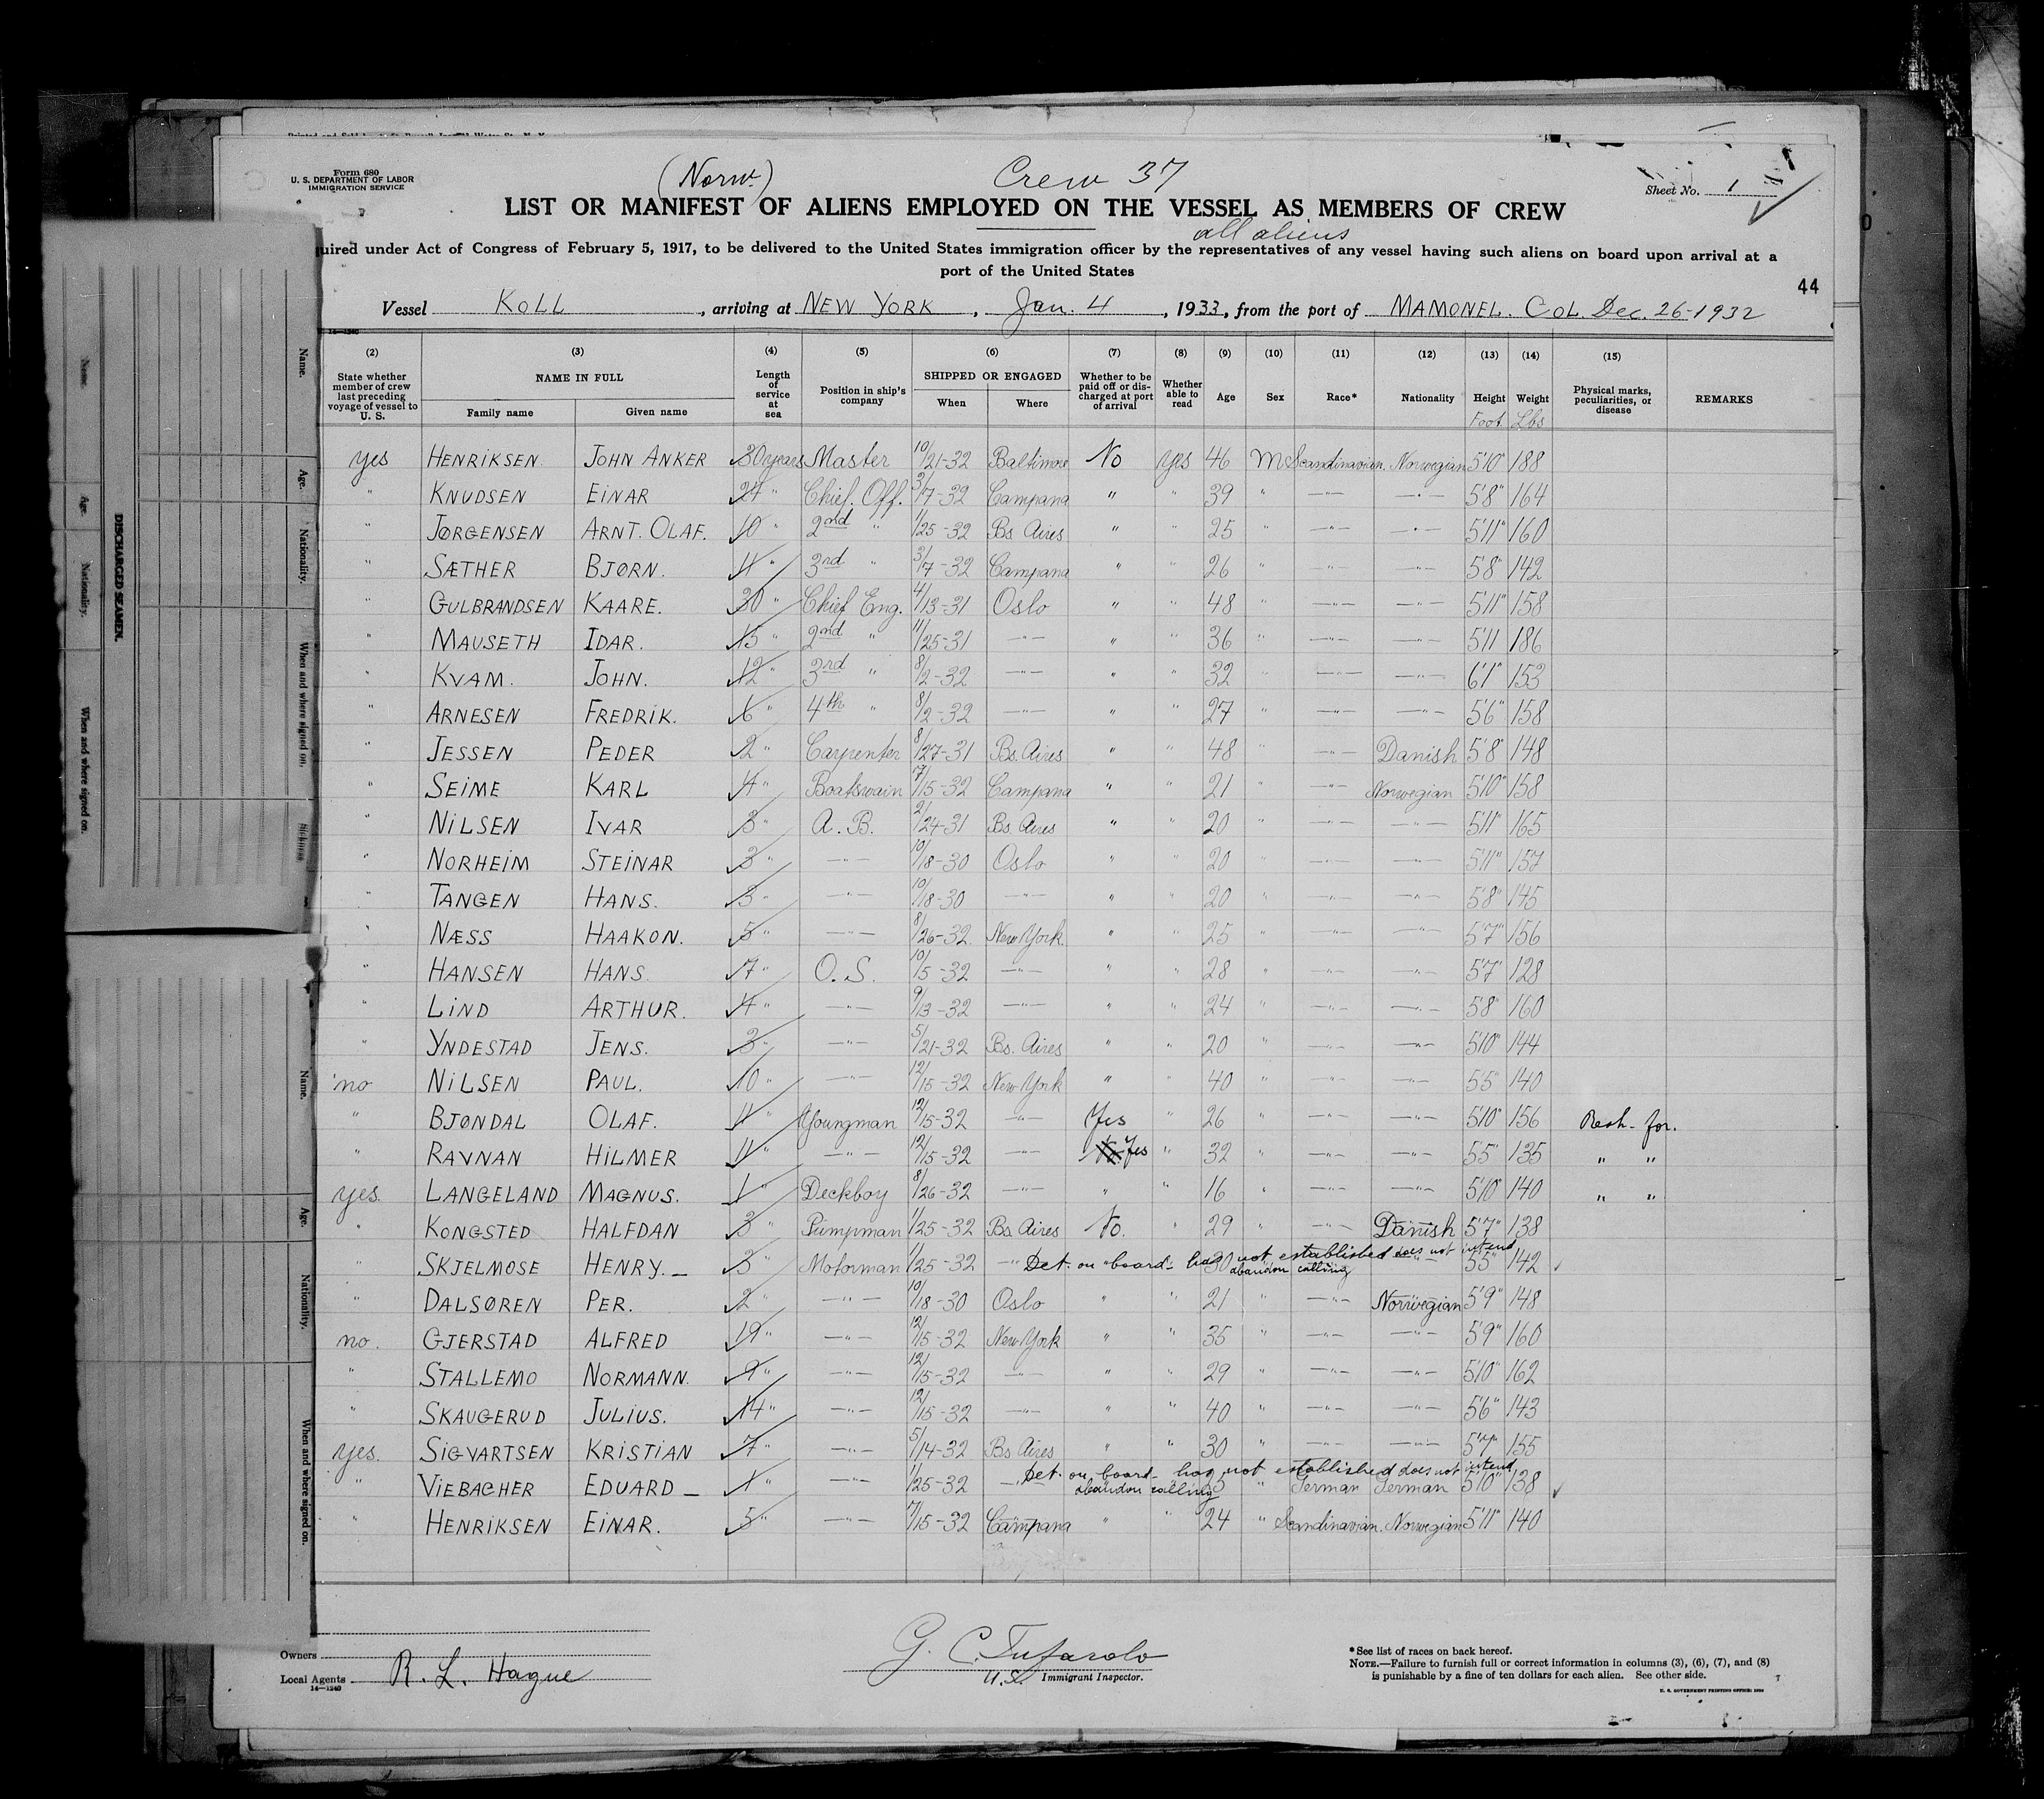 Form 680
U. S. DEPARTMENT OF LABOR
IMMIGRATION SERVICE
(Norw.)
Crew 37
Sheet No. 1
LIST OR MANIFEST OF ALIENS EMPLOYED ON THE VESSEL AS MEMBERS OF CREW
all aliens
uired under Act of Congress of February 5, 1917, to be delivered to the United States immigration officer by the representatives of any vessel having such aliens on board upon arrival at a
port of the United States
44
Vessel KOLL, arriving at NEW YORK, Jan. 4, 1933, from the port of MAMONEL. COL. Dec. 26-1932
14-1240
(2) (3) (4) (5) (6) (7) (8) (9) (10) (11) (12) (13) (14) (15)
State whether member of crew last preceding voyage of vessel to U. S. | NAME IN FULL | Family name | Given name | Length of service at sea | Position in ship's company | SHIPPED OR ENGAGED | When | Where | Whether to be paid off or discharged at port of arrival | Whether able to read | Age | Sex | Race* | Nationality | Height Foot | Weight Lbs | Physical marks, peculiarities, or disease | REMARKS
yes HENRIKSEN. JOHN ANKER 30 years Master 10/21-32 Baltimore No yes 46 M Scandinavian. Norwegian 5'10" 188
" KNUDSEN EINAR 24 " Chief. Off. 3/7-32 Campana " " 39 " —"— —"— 5'8" 164
" JØRGENSEN ARNT. OLAF. 10 " 2nd " 1/25-32 Bs Aires " " 25 " —"— " 5'11" 160
" SÆTHER BJØRN. 4 " 3rd " 3/7-32 Campana " " 26 " —"— —"— 5'8" 142
" GULBRANDSEN KAARE. 30 " Chief Eng. 4/13-31 Oslo " " 48 " —"— —"— 5'11" 158
" MAUSETH IDAR. 15 " 2nd " 11/25-31 —"— " " 36 " —"— —"— 5'11 186
" KVAM. JOHN. 12 " 3rd " 8/2-32 —"— " " 32 " —"— —"— 6'1" 153
" ARNESEN FREDRIK. 6 " 4th " 8/2-32 —"— " " 27 " —"— —"— 5'6" 158
" JESSEN PEDER 2 " Carpenter 8/27-31 Bs. Aires " " 48 " —"— Danish 5'8" 148
" SEIME KARL 4 " Boatswain 7/15-32 Campana " " 21 " —"— Norwegian 5'10" 158
" NILSEN IVAR 3 " A. B. 2/24-31 Bs. Aires " " 20 " —"— —"— 5'11" 165
" NORHEIM STEINAR 3 " —"— 10/18-30 Oslo " " 20 " —"— —"— 5'11" 157
" TANGEN HANS. 3 " —"— 10/18-30 —"— " " 20 " —"— —"— 5'8" 145
" NÆSS HAAKON. 5 " —"— 8/26-32 New York. " " 25 " —"— —"— 5'7" 156
" HANSEN HANS. 7 " O. S. 10/5-32 —"— " " 28 " —"— —"— 5'7" 128
" LIND ARTHUR. 4 " —"— 9/13-32 —"— " " 24 " —"— —"— 5'8" 160
" YNDESTAD JENS. 3 " —"— 5/21-32 Bs. Aires " " 20 " —"— —"— 5'10" 144
no NILSEN PAUL. 10 " —"— 12/15-32 New York " " 40 " —"— —"— 5'5" 140
" BJØNDAL OLAF. 11 " Youngman 12/15-32 —"— Yes " 26 " —"— —"— 5'10" 156 Resh. for.
" RAVNAN HILMER 11 " —"— 12/15-32 —"— Yes " 32 " —"— —"— 5'5" 135 " "
yes. LANGELAND MAGNUS. 1 " Deckboy 8/26-32 —"— " " 16 " —"— —"— 5'10" 140 " "
" KONGSTED HALFDAN 3 " Pumpman 1/25-32 Bs. Aires No. " 29 " —"— Danish 5'7" 138
" SKJELMOSE HENRY. 3 " Motorman 1/25-32 —"— Det. on board - has not established does not intend abandon calling 30 5'5" 142
" DALSØREN PER. 2 " —"— 10/18-30 Oslo " " 21 " —"— Norwegian 5'9" 148
no. GJERSTAD ALFRED 19 " —"— 12/15-32 New York " " 35 " —"— —"— 5'9" 160
" STALLEMO NORMANN. 9 " —"— 12/15-32 —"— " " 29 " —"— —"— 5'10" 162
" SKAUGERUD JULIUS. 14 " —"— 12/15-32 —"— " " 40 " —"— —"— 5'6" 143
yes. SIGVARTSEN KRISTIAN 7 " —"— 5/14-32 Bs Aires " " 30 " —"— —"— 5'7" 155
" VIEBACHER EDUARD 1 " —"— 1/25-32 —"— Det. on board - has not established does not intend abandon calling " German German 5'10" 138
" HENRIKSEN EINAR. 5 " —"— 7/15-32 Campana " " 24 " Scandinavian. Norwegian 5'11" 140
Owners
Local Agents R. L. Hague
14-1240
G. C. Tufarolo
U.S. Immigrant Inspector.
*See list of races on back hereof.
NOTE.—Failure to furnish full or correct information in columns (3), (6), (7), and (8)
is punishable by a fine of ten dollars for each alien. See other side.
U. S. GOVERNMENT PRINTING OFFICE: 1930
DISCHARGED SEAMEN.
Name.
Age.
Nationality.
When and where signed on.
Name.
Age.
Nationality.
When and where signed on.
Name.
Age.
Nationality.
When and where signed on.